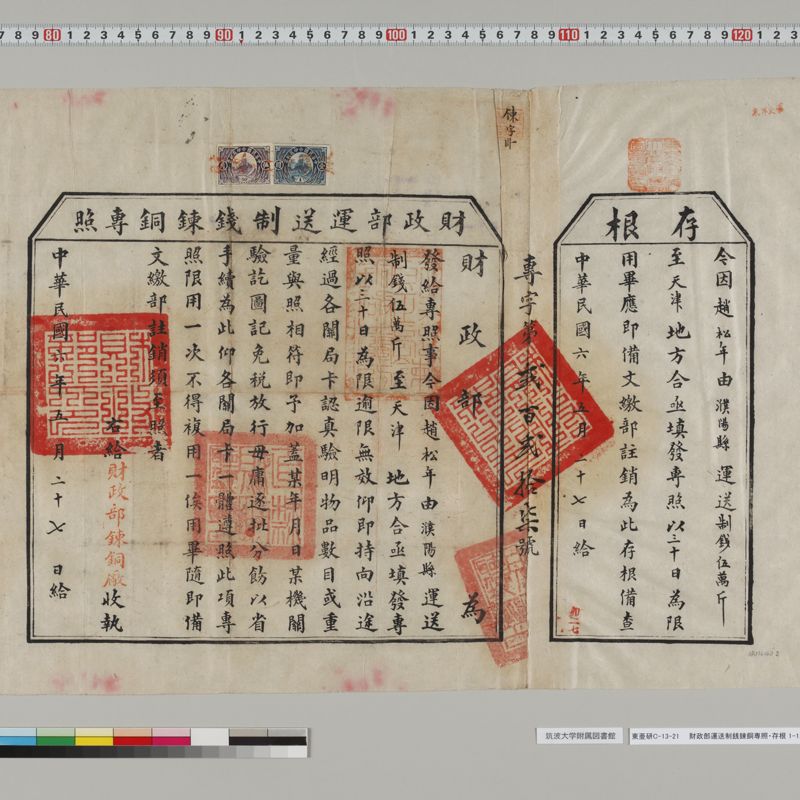 存根
今因趙松年由濮陽縣運送制錢伍萬斤
至天津地方合亟填發專照以三十日為限
用畢應即備文繳部註銷為此存根備查
中華民國六年五月二十七日給
專字第貳百貳拾柒號
財政部運送制錢鍊銅專照
財政部為
發給專照事今因趙松年由濮陽縣運送
制錢伍萬斤至天津地方合亟填發專
照以三十日為限逾限無效仰即持向沿途
經過各關局卡認真驗明物品數目或重
量與照相符即予加蓋某年月日某機關
驗訖圖記免稅放行毋庸逐批分飭以省
手續為此仰各關局卡一體遵照此項專
照限用一次不得複用一俟用畢隨即備
文繳部註銷須至照者
右給財政部鍊銅廠收執
中華民國六年五月二十七日給
筑波大学附属図書館
東亜研C-13-21 財政部運送制銭錬銅専照・存根